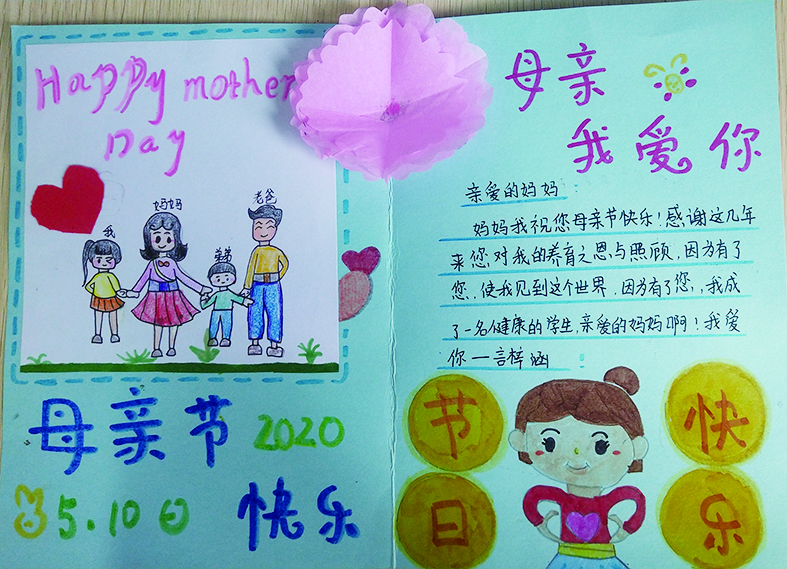 Happy mother
Day
我
妈妈
弟弟
老爸
母亲节 2020
5.10日 快乐
母亲
我爱你
亲爱的妈妈：
妈妈我祝您母亲节快乐！感谢这几年
来您对我的养育之恩与照顾，因为有了
您，使我见到这个世界，因为有了您，我成
了一名健康的学生，亲爱的妈妈啊！我爱
你 — 言梓涵
节 快
日 乐